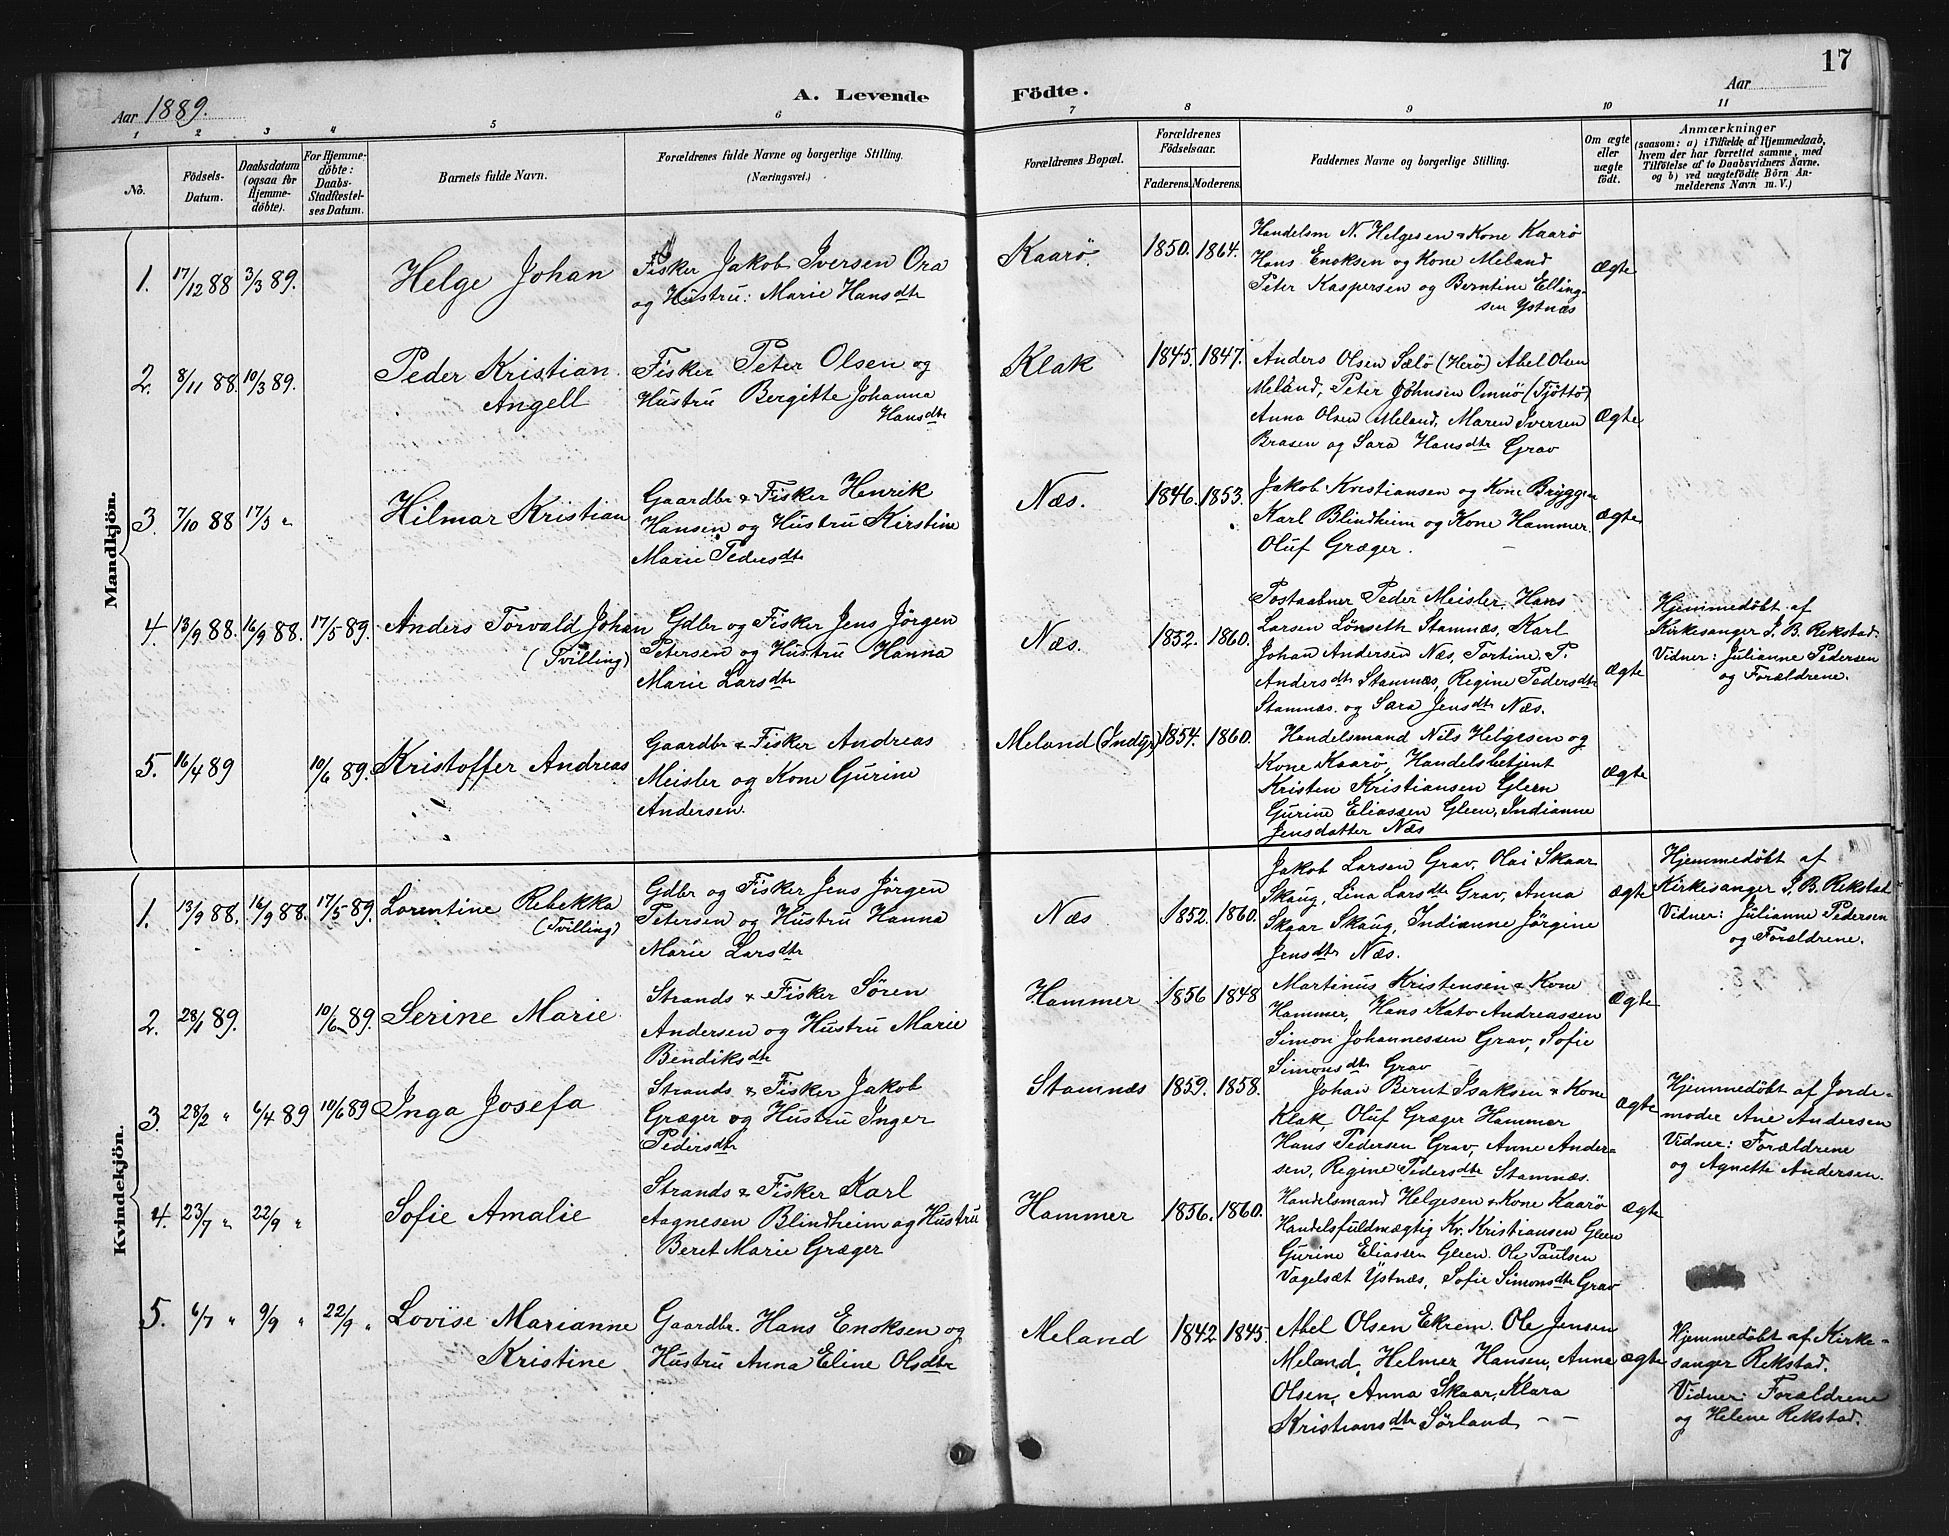 17
Aar 1889.
A. Levende Födte.
Aar
1 2 3 4 5 6 7 8 9 10 11
No.
Födsels-
Datum.
Daabsdatum
(ogsaa for
Hjemme-
döbte).
For Hjemme-
döbte:
Daabs-
Stadfæstel-
ses Datum.
Barnets fulde Navn.
Forældrenes fulde Navne og borgerlige Stilling.
(Næringsvei.)
Forældrenes Bopæl.
Forældrenes
Födselsaar.
Faderens. Moderens.
Faddernes Navne og borgerlige Stilling.
Om ægte
eller
uægte
födt.
Anmærkninger
(saasom: a) i Tilfælde af Hjemmedaab,
hvem der har forrettet samme, med
Tilföielse af to Daabsvidners Navne.
og b) ved uægtefödte Börn An-
melderens Navn m. V.)
Mandkjön.
1. 17/12 88 3/3 89.
Helge Johan
Fisker Jakob Iversen Ora
og Hustru: Marie Hansdtr
Kaarö.
1850. 1864.
Handelsm N. Helgesen & Kone Kaarö
Hans Enoksen og Kone Meland
Peter Kaspersen og Berntine Elling-
sen Ystnæs
Ægte
2. 8/11 88. 10/3 89.
Peder Kristian
Angell
Fisker Peter Olsen og
Hustru Bergitte Johanna
Hansdtr
Klak
1845. 1847.
Anders Olsen Sælö (Herö) Abel Olsen
Meland, Peter Johnsen Omnö (Tjöttö)
Anna Olsen Meland, Maren Iversen
Brasen og Sara Hansdtr Grav
Ægte
3. 7/10 88 17/3 "
Hilmar Kristian
Gaardbr & Fisker Henrik
Hansen og Hustru Kirstine
Marie Pedersdtr
Næs.
1846. 1853.
Jakob Kristiansen og Kone Bryggen
Karl Blindheim og Kone Hammer
Oluf Græger.
ægte
4. 13/9 88. 16/9 88. 17/5 89.
Anders Torvald Johan
(Tvilling)
Gdbr og Fisker Jens Jörgen
Petersen og Hustru Hanna
Marie Larsdtr
Næs.
1852. 1860.
Postaabner Peder Meisler, Hans
Larsen Lönseth Stamnæs, Karl
Johan Andersen Næs, Tortine P.
Andersdtr Stamnæs, Regine Pedersdtr
Stamnæs. og Sara Jensdtr Næs.
ægte
Hjemmedöbt af
Kirkesanger J. B. Rekstad.
Vidner: Julianne Pedersen
og Forældrene.
5. 16/4 89 10/6 89.
Kristoffer Andreas
Gaardbr & Fisker Andreas
Meisler og Kone Gurine
Andersen.
Meland (Indyr)
1854. 1860.
Handelsmand Nils Helgesen og
Kone Kaarö, Handelsbetjent
Kristen Kristiansen Gleen
Gurine Eliassen Gleen, Indianne
Jensdatter Næs
ægte
Kvindekjön.
1. 13/9 88. 16/9 88. 17/5 89.
Lorentine Rebekka
(Tvilling)
Gdbr og Fisker Jens Jörgen
Petersen og Hustru Hanna
Marie Larsdtr
Næs
1852. 1860.
Jakob Larsen Grav, Olai Skaar
Skaug, Lina Larsdtr Grav, Anna
Skaar Skaug, Indianne Jörgine
Jensdtr Næs.
ægte
Hjemmedöbt af
Kirkesanger J. B. Rekstad
Vidner: Julianne Pedersen
og Forældrene.
2. 28/1 89. 10/6 89.
Serine Marie
Strands & Fisker Sören
Andersen og Hustru Marie
Bendiksdtr
Hammer
1856 1848
Martinus Kristensen & Kone
Hammer, Hans Kato Andreassen
Simon Johannessen Grav, Sofie
Simonsdtr Grav
Ægte
3. 28/2 " 6/4 89 10/6 89
Inga Josefa
Strands & Fisker Jakob
Græger og Hustru Inger
Pedersdtr
Stamnæs
1859. 1858.
Johan Bernt Isaksen & Kone
Klak, Oluf Græger Hammer
Hans Pedersen Grav, Anne Ander-
sen, Regine Pedersdtr Stamnæs.
Ægte
Hjemmedöbt af Jorde-
moder Ane Andersen
Vidner: Forældrene
og Agnette Andersen.
4. 23/7 " 22/9 "
Sofie Amalie
Strands & Fisker Karl
Aagnesen Blindheim og Hustru
Beret Marie Græger
Hammer
1856. 1860.
Handelsmand Helgesen & Kone Kaarö
Handelsfuldmægtig Kr. Kristiansen Gleen
Gurine Eliassen Gleen. Ole Paulsen
Vagelsæt Ystnæs, Sofie Simonsdtr Grav
Ægte
5. 6/7 " 9/9 " 22/9 "
Lovise Marianne
Kristine
Gaardbr. Hans Enoksen og
Hustru Anna Eline Olsdtr
Meland
1842 1845.
Abel Olsen Ekrem. Ole Jensen
Meland, Helmer Hansen, Anna
Olsen, Anna Skaar, Klara
Kristiansdtr Sörland
ægte
Hjemmedöbt af Kirke-
sanger Rekstad.
Vidner: Forældrene
og Helene Rekstad.